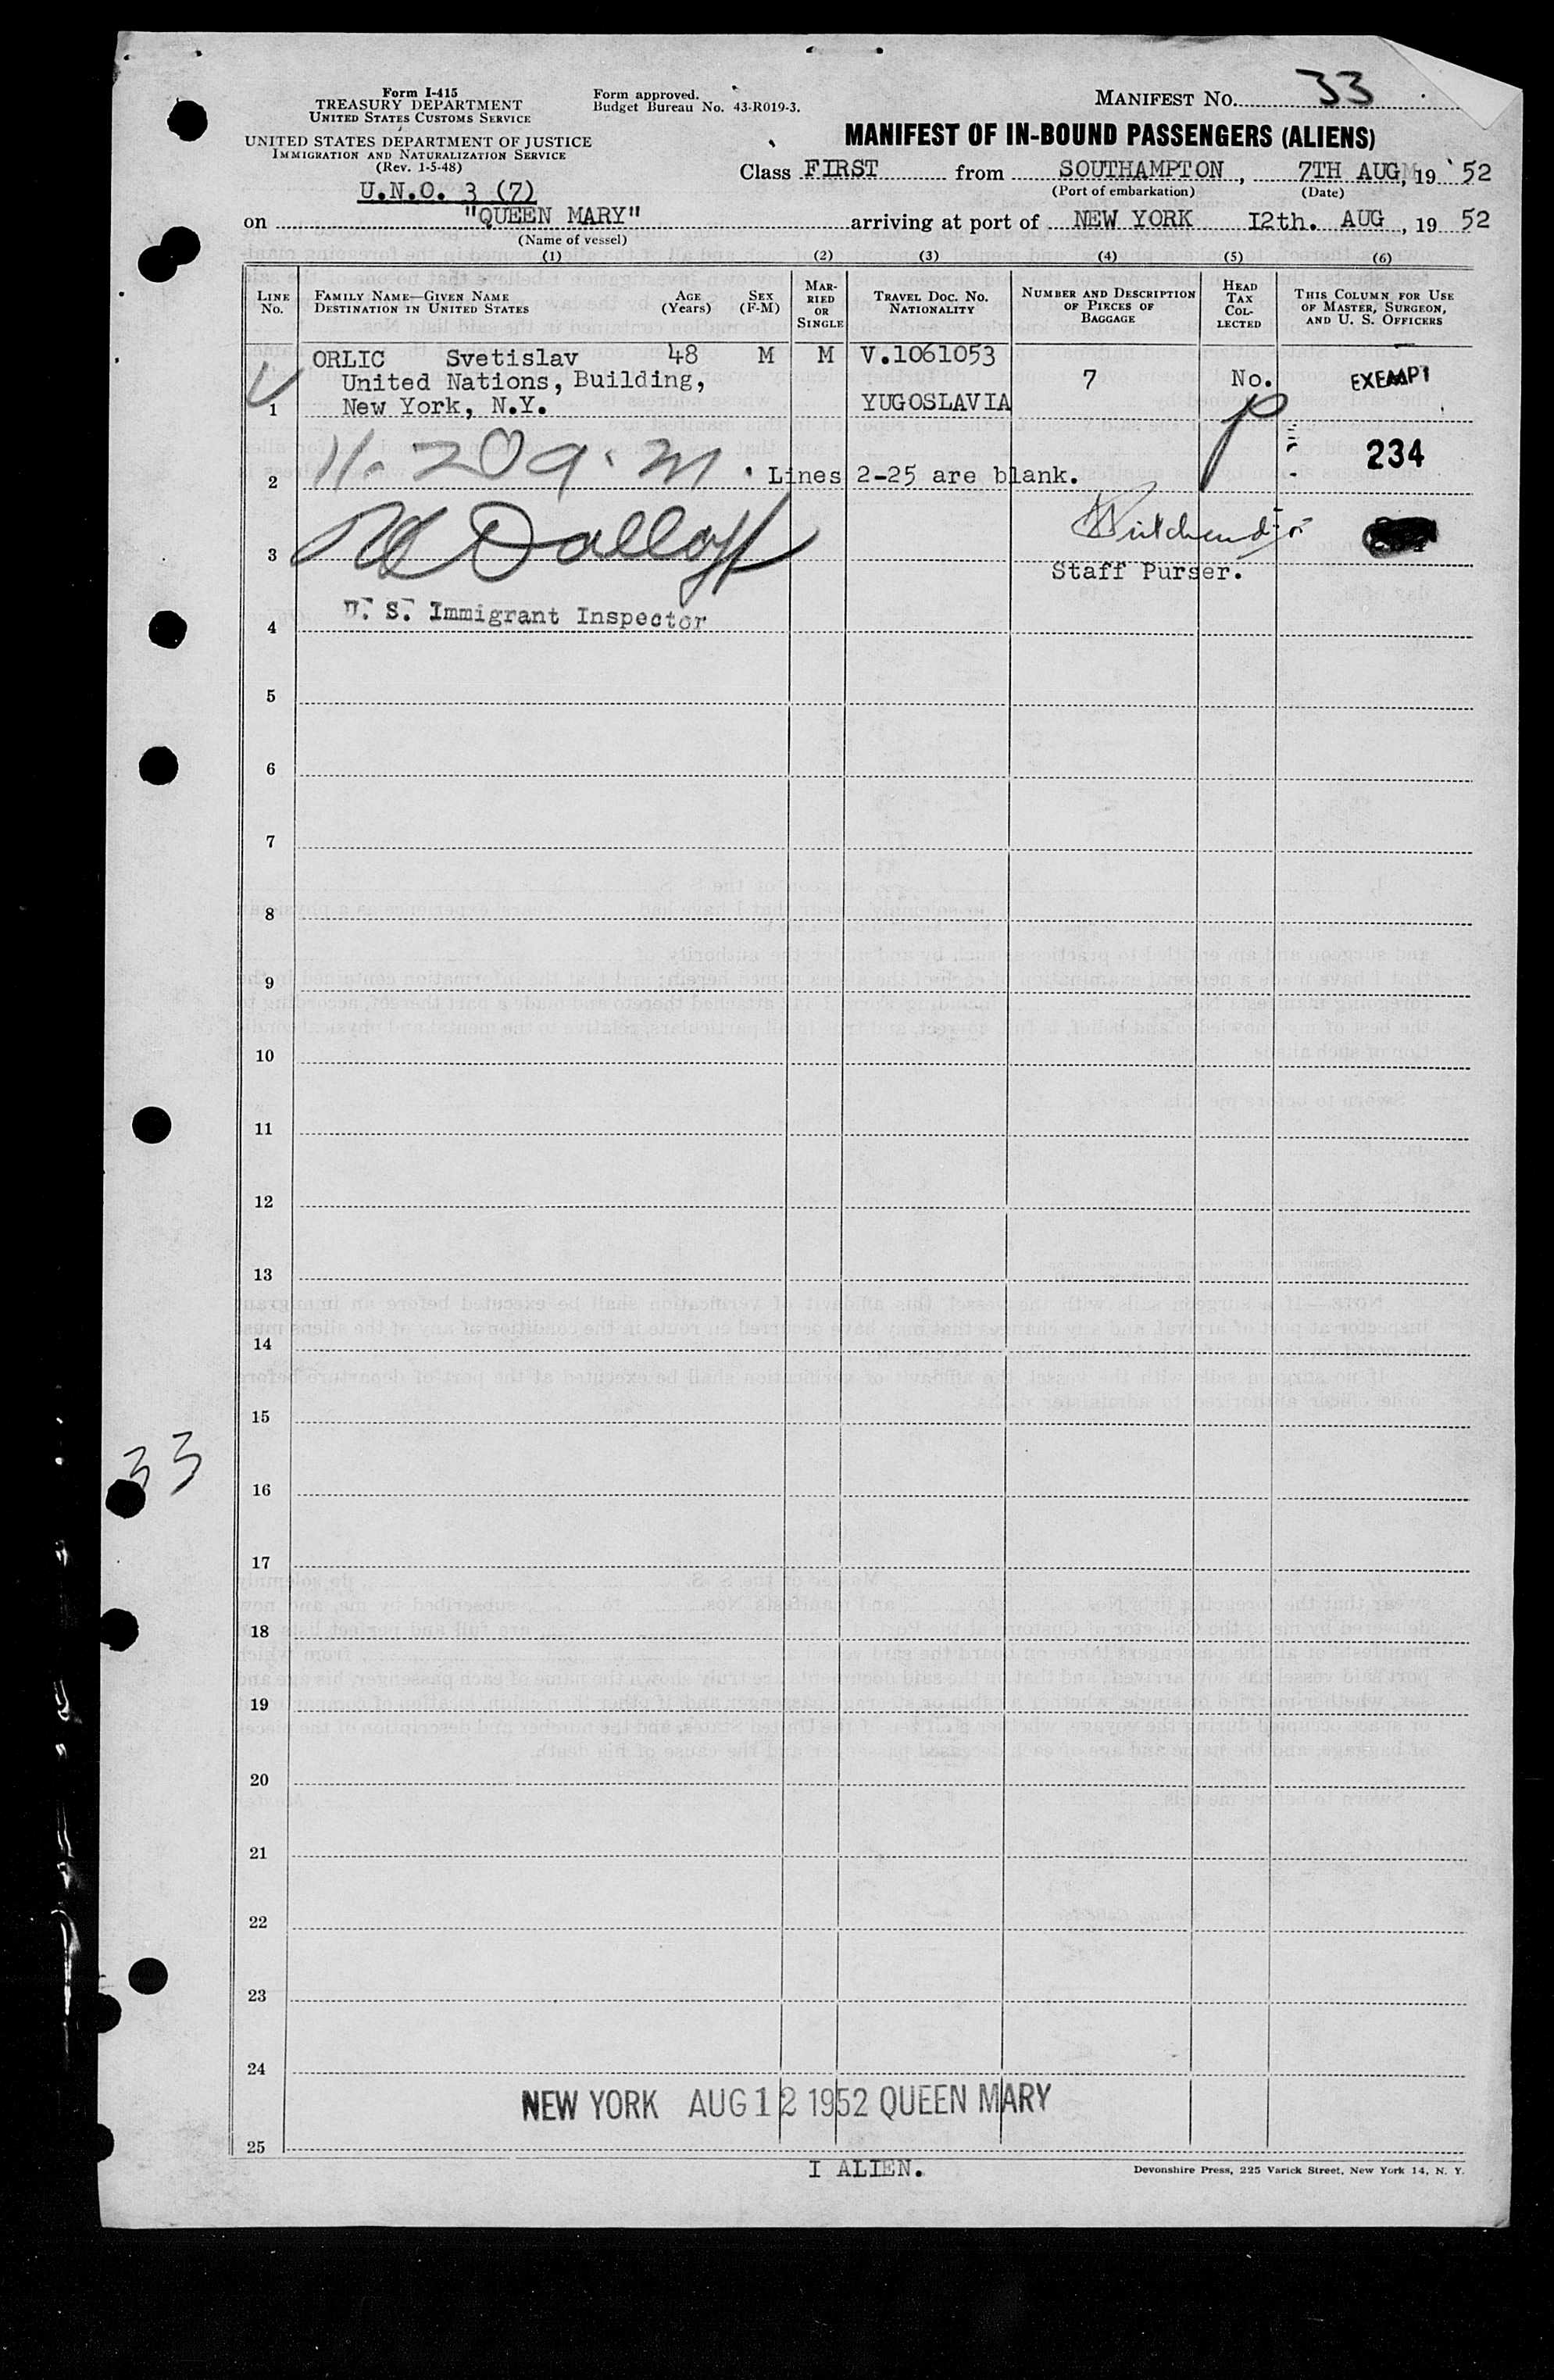 Form I-415
TREASURY DEPARTMENT
UNITED STATES CUSTOMS SERVICE
UNITED STATES DEPARTMENT OF JUSTICE
IMMIGRATION AND NATURALIZATION SERVICE
(Rev. 1-5-48)
U.N.O. 3 (7)
Form approved.
Budget Bureau No. 43-R019-3.
MANIFEST NO. 33
MANIFEST OF IN-BOUND PASSENGERS (ALIENS)
Class FIRST from SOUTHAMPTON, 7TH AUG, 19 '52
(Port of embarkation) (Date)
on "QUEEN MARY" arriving at port of NEW YORK I2th. AUG, 19 52
(Name of vessel)
(1) (2) (3) (4) (5) (6)
LINE No. FAMILY NAME—GIVEN NAME DESTINATION IN UNITED STATES AGE (Years) SEX (F-M) MARRIED OR SINGLE TRAVEL DOC. NO. NATIONALITY NUMBER AND DESCRIPTION OF PIECES OF BAGGAGE HEAD TAX COLLECTED THIS COLUMN FOR USE OF MASTER, SURGEON, AND U. S. OFFICERS
ORLIC Svetislav 48 M M V.1061053
United Nations, Building, 7 No. EXEMPT
1 New York, N.Y. YUGOSLAVIA
11.20 a.m. 234
2 Lines 2-25 are blank.
3
Staff Purser.
U. S. Immigrant Inspector
4
5
6
7
8
9
10
11
12
13
14
15
33
16
17
18
19
20
21
22
23
24
NEW YORK AUG 12 1952 QUEEN MARY
25
I ALIEN.
Devonshire Press, 225 Varick Street, New York 14, N. Y.